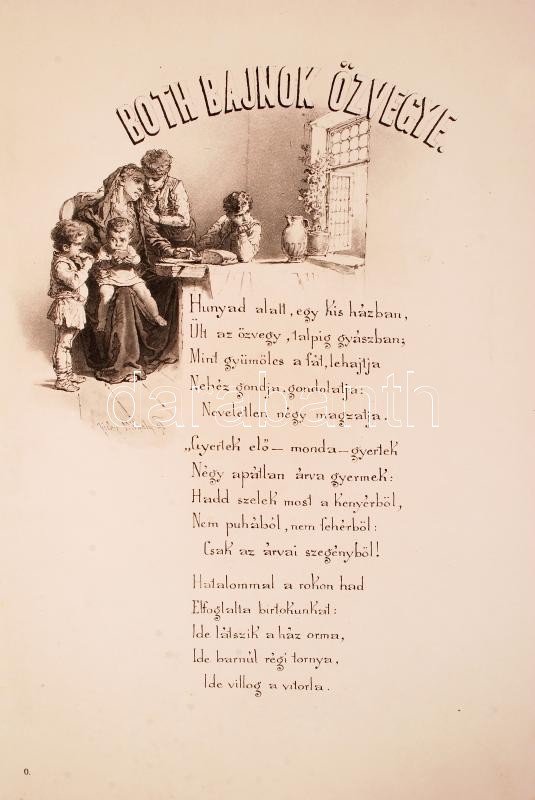 BOTH BAJNOK ÖZVEGYE.
Hunyad alatt, egy kis házban,
Ült az özvegy, talpig gyászban;
Mint gyümölcs a fát, lehajtja
Nehéz gondja, gondolatja:
Neveletlen négy magzatja.
„Gyertek elő — monda — gyertek
Négy apátlan árva gyermek:
Hadd szelek most a kenyérből,
Nem puhából, nem fehérből:
Csak az árvai szegényből!
Hatalommal a rokon had
Elfoglalta birtokunkat:
Ide látszik a ház orma,
Ide barnúl régi tornya,
Ide villog a vitorla.
darabanth
0.